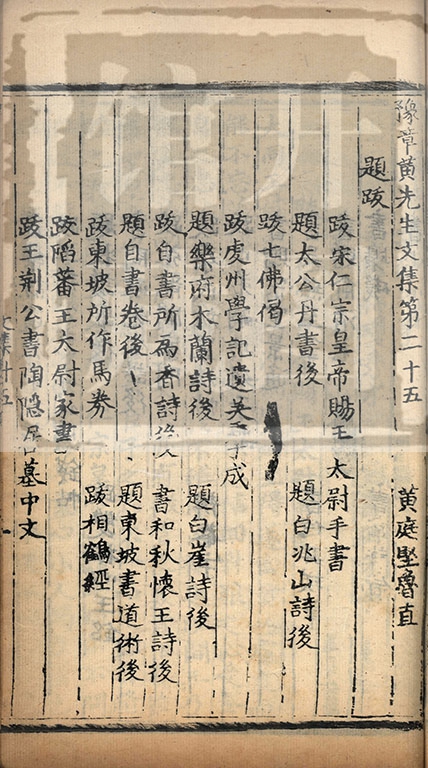 豫章黃先生文集第二十五　黃庭堅魯直
題跋
跋宋仁宗皇帝賜王太尉手書
題太公丹書後　題白兆山詩後
跋七佛偈
跋虔州學記遺吳季成
題樂府木蘭詩後　題白崖詩後
跋自書所爲香詩後　書和秋懷五詩後
題自書卷後　題東坡書道術後
跋東坡所作馬券　跋相鶴經
跋蹈蕃王太尉家書
跋王荊公書陶隱居墓中文
文集廿五　一